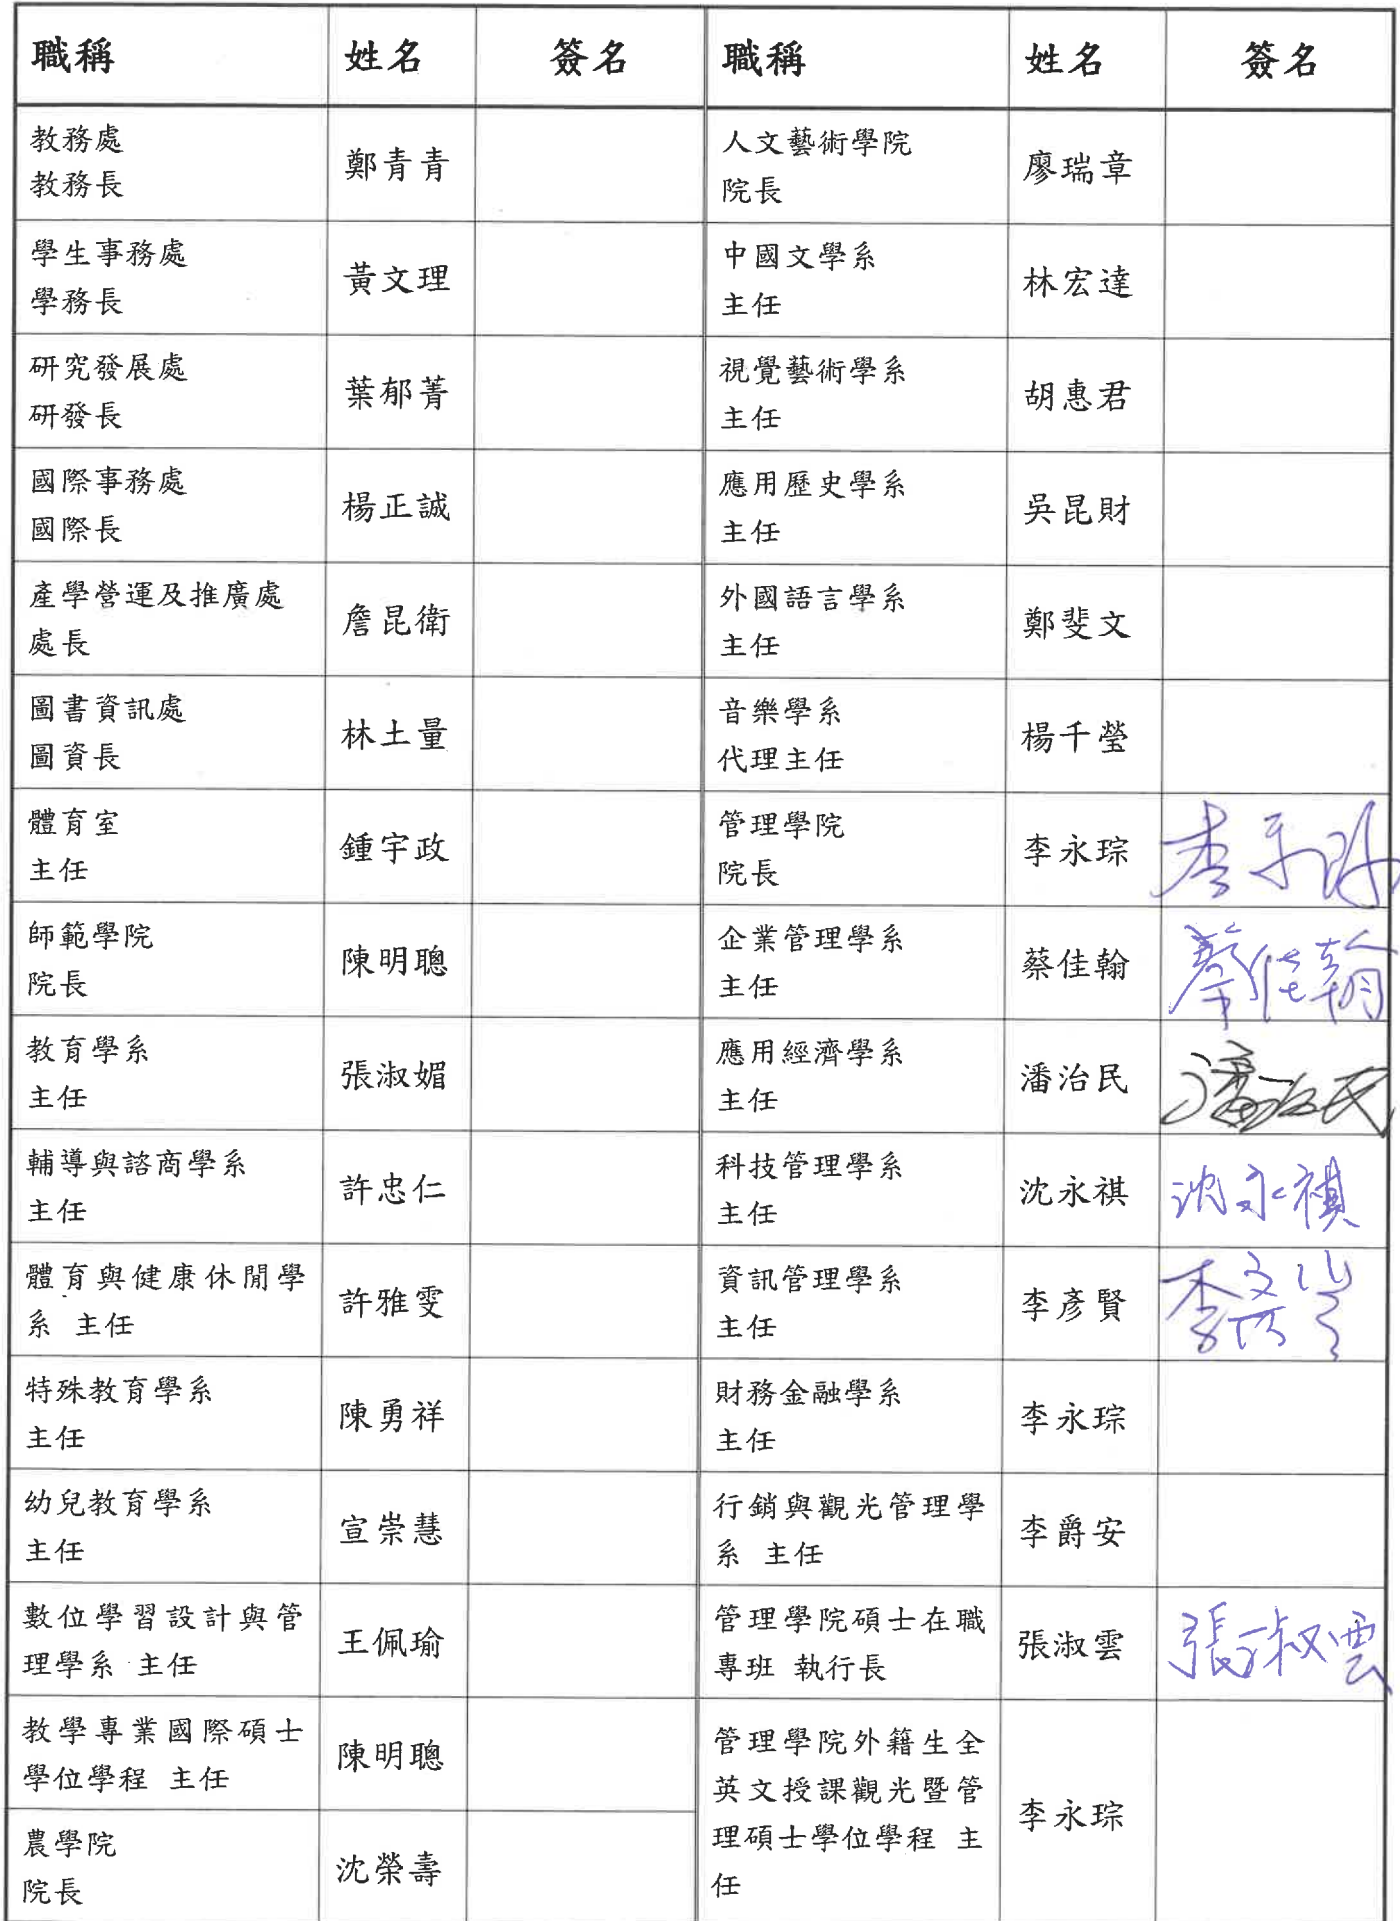 職稱 姓名 簽名 職稱 姓名 簽名
教務處
教務長
鄭青青
人文藝術學院
院長
廖瑞章
學生事務處
學務長
黃文理
中國文學系
主任
林宏達
研究發展處
研發長
葉郁菁
視覺藝術學系
主任
胡惠君
國際事務處
國際長
楊正誠
應用歷史學系
主任
吳昆財
產學營運及推廣處
處長
詹昆衛
外國語言學系
主任
鄭斐文
圖書資訊處
圖資長
林土量
音樂學系
代理主任
楊千瑩
體育室
主任
鍾宇政
管理學院
院長
李永琮
李永琮
師範學院
院長
陳明聰
企業管理學系
主任
蔡佳翰
蔡佳翰
教育學系
主任
張淑媚
應用經濟學系
主任
潘治民
潘治民
輔導與諮商學系
主任
許忠仁
科技管理學系
主任
沈永祺
沈永祺
體育與健康休閒學
系 主任
許雅雯
資訊管理學系
主任
李彥賢
李彥賢
特殊教育學系
主任
陳勇祥
財務金融學系
主任
李永琮
幼兒教育學系
主任
宣崇慧
行銷與觀光管理學
系 主任
李爵安
數位學習設計與管
理學系 主任
王佩瑜
管理學院碩士在職
專班 執行長
張淑雲
張淑雲
教學專業國際碩士
學位學程 主任
陳明聰
管理學院外籍生全
英文授課觀光暨管
理碩士學位學程 主
任
李永琮
農學院
院長
沈榮壽